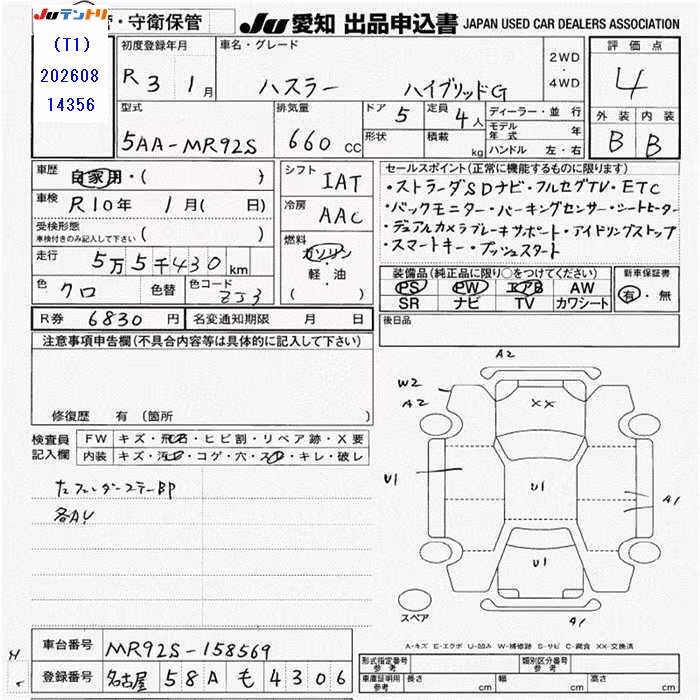 JUテントリ ・守衛保管 Ju 愛知 出品申込書 JAPAN USED CAR DEALERS ASSOCIATION
(T1)
202608
14356
初度登録年月
R3 1月
車名・グレード
ハスラー ハイブリッドG
2WD
・
4WD
評価点
4
型式
5AA-MR92S
排気量
660 CC
ドア 5
定員 4人
形状
積載 kg
ディーラー・並行
モデル年式 年
ハンドル 左・右
外装 内装
B B
車歴 自家用・( )
車検 R10年 1月( 日)
受検形態
車検付きのみ記入して下さい ( )
走行 5万5千430km
色 クロ 色替 色コード ZJ3
シフト IAT
冷房 AAC
燃料
ガソリン
・
軽・油
( )
セールスポイント(正常に機能するものに限ります)
・ストラーダSDナビ・フルセグTV・ETC
・バックモニター・パーキングセンサー・シートヒーター
・デュアルカメラブレーキサポート・アイドリングストップ
・スマートキー・プッシュスタート
装備品(純正品に限り○をつけてください)
PS PW エアB AW
SR ナビ TV カワシート
新車保証書
有・無
R券 6830円 名変通知期限 月 日
後日品
注意事項申告欄(不具合内容等は具体的に記入して下さい)
修復歴 有(箇所 )
検査員記入欄
FW キズ・飛石・ヒビ割・リペア跡・X要
内装 キズ・汚レ・コゲ・穴・スレ・キレ・破レ
左フェンダーステーBP
各AU
A2
W2
A2
XX
U1
U1
A1
U1
A1
スペア
A-キズ E-エクボ U-凹み W-補修跡 S-サビ C-腐食 XX-交換済
車台番号 MR92S-158569
登録番号 名古屋 58A も 4306
型式指定番号 参考 類別区分番号 参考
車庫証明用 参考 長さ cm 幅 cm 高さ cm